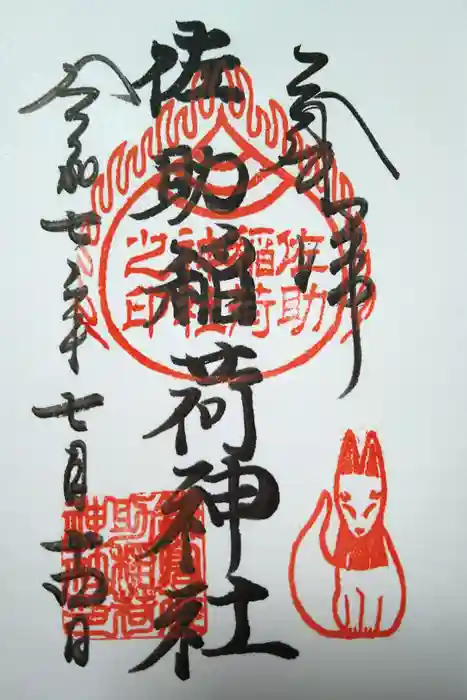 奉拝
佐助稲荷神社
令和七年七月 日
佐助
稲荷
神社
之印
助稲荷
神社印